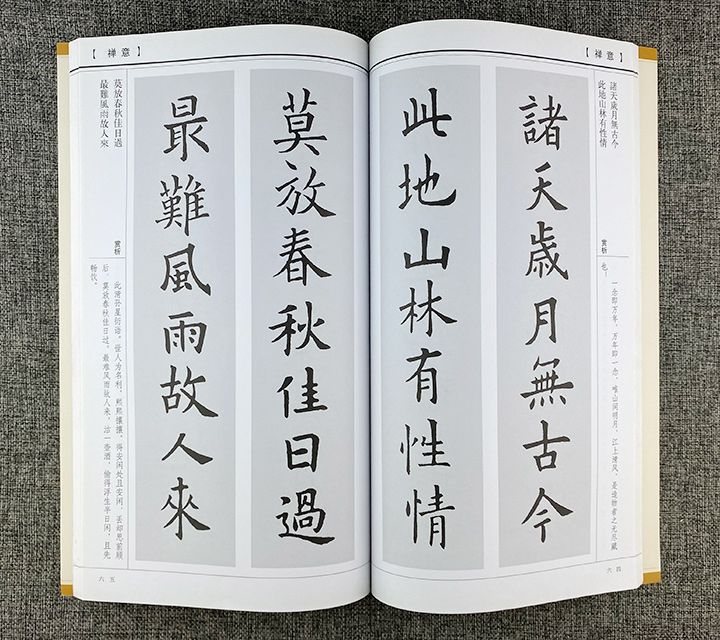 【禅意】
諸天歲月無古今
此地山林有性情
赏析
一念即万年，万年即一念。唯山间明月，江上清风，是造物者之无尽藏
也！
諸天歲月無古今
此地山林有性情
六四
【禅意】
莫放春秋佳日過
最難風雨故人來
莫放春秋佳日過
最難風雨故人來
赏析
此清孙星衍语。世人为名利，熙熙攘攘，得安闲处且安闲，丢却思前顾
后，莫放春秋佳日过，最难风雨故人来，沽一壶酒，偷得浮生半日闲，且先
畅饮。
六五